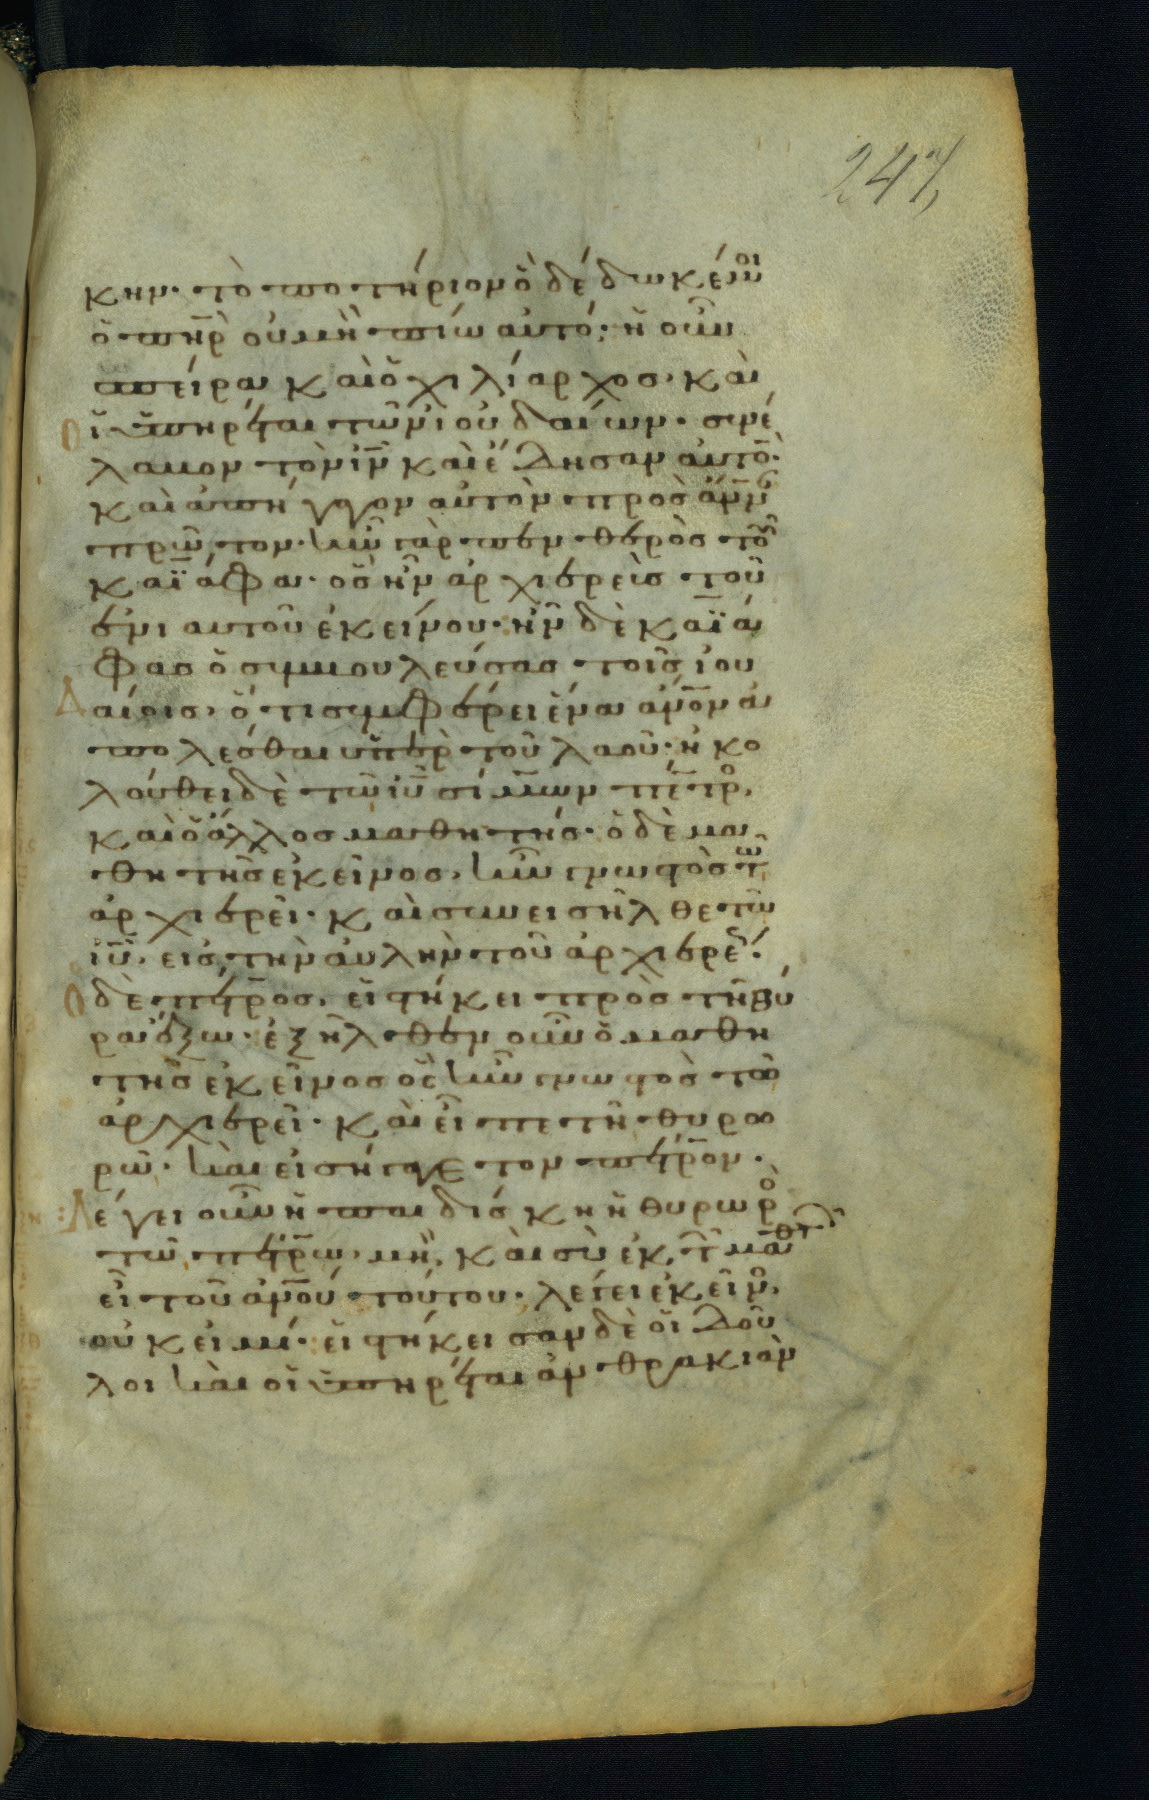 247
κην· τὸ ποτήριον ὃ δέδωκέ μοι
ὁ π̅η̅ρ̅ οὐ μὴ πίω αὐτό· ἡ οὖν
σπείρα καὶ ὁ χιλίαρχος· καὶ
οἱ ὑπηρέται τῶν ἰουδαίων· συνέ
λαβον τὸν ι̅ν̅ καὶ ἔδησαν αὐτὸ·
καὶ ἀπήγαγον αὐτὸν πρὸς ἄνναν
πρῶτον· ἦν γὰρ πενθερὸς τοῦ
καϊάφα· ὃς ἦν ἀρχιερεὺς τοῦ
ἐνιαυτοῦ ἐκείνου· ἦν δὲ καϊά
φας ὁ συμβουλεύσας τοῖς ἰου
δαίοις· ὅτι συμφέρει ἕνα α̅ν̅ο̅ν̅ ἀ
πολέσθαι ὑπὲρ τοῦ λαοῦ· ἠκο
λούθει δὲ τῶ ι̅υ̅ σίμων πέτρο,
καὶ ὁ ἄλλος μαθητής· ὁ δὲ μα
θητὴς ἐκεῖνος, ἦν γνωστὸς τῶ
ἀρχιερεῖ· καὶ συνεισῆλθε τῶ
ι̅υ̅· εἰς τὴν αὐλὴν τοῦ ἀρχιερέ·
Ὁ δὲ πέτρος, εἱστήκει πρὸς τῆ θύ
ρα ἔξω· ἐξῆλθεν οὖν ὁ μαθη
τὴς ἐκεῖνος ὃς ἦν γνωστὸς τῶ
ἀρχιερεῖ· καὶ εἶπε τῆ θυρω
ρῶ· καὶ εἰσήγαγε τον πέτρον·
Λέγει οὖν ἡ παιδίσκη ἡ θυρωρὸ
τῶ πέτρω· μὴ καὶ σὺ ἐκ τῶν μαθητῶν
εἶ τοῦ α̅ν̅ο̅υ̅ τούτου· λέγει ἐκεῖνο,
οὐκ εἰμί· εἱστήκεισαν δὲ οἱ δοῦ
λοι καὶ οἱ ὑπηρέται ἀνθρακιὰν